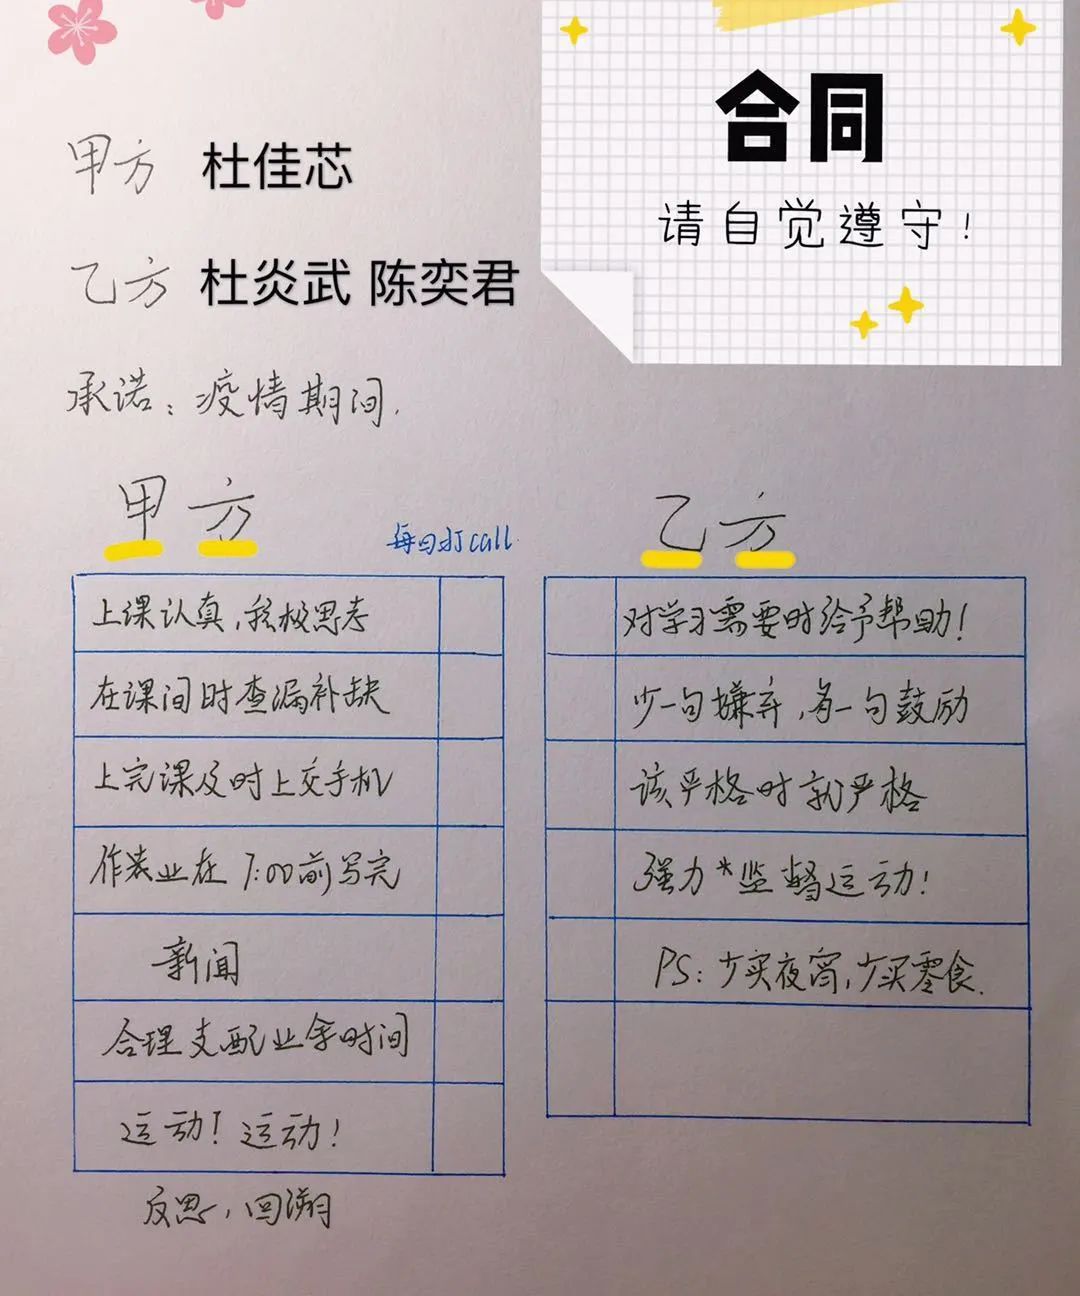 合同
请自觉遵守！
甲方 杜佳芯
乙方 杜炎武 陈奕君
承诺：疫情期间，
甲方
每日打call
上课认真，积极思考
在课间时查漏补缺
上完课及时上交手机
作业在 7:00前写完
新闻
合理支配业余时间
运动！运动！
反思，回溯
乙方
对学习需要时给予帮助！
少一句嫌弃，多一句鼓励
该严格时就严格
强力*监督运动！
PS：少买夜宵，少买零食.